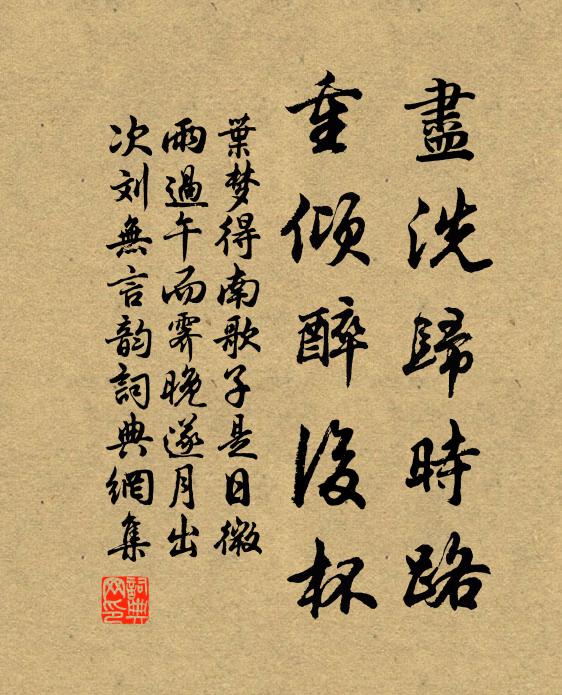 盡洗歸時路
重傾醉後杯
葉梦得南歌子是日微
雨過午而霽晚遂月出
次刘無言韵詞典網集
詞典网印